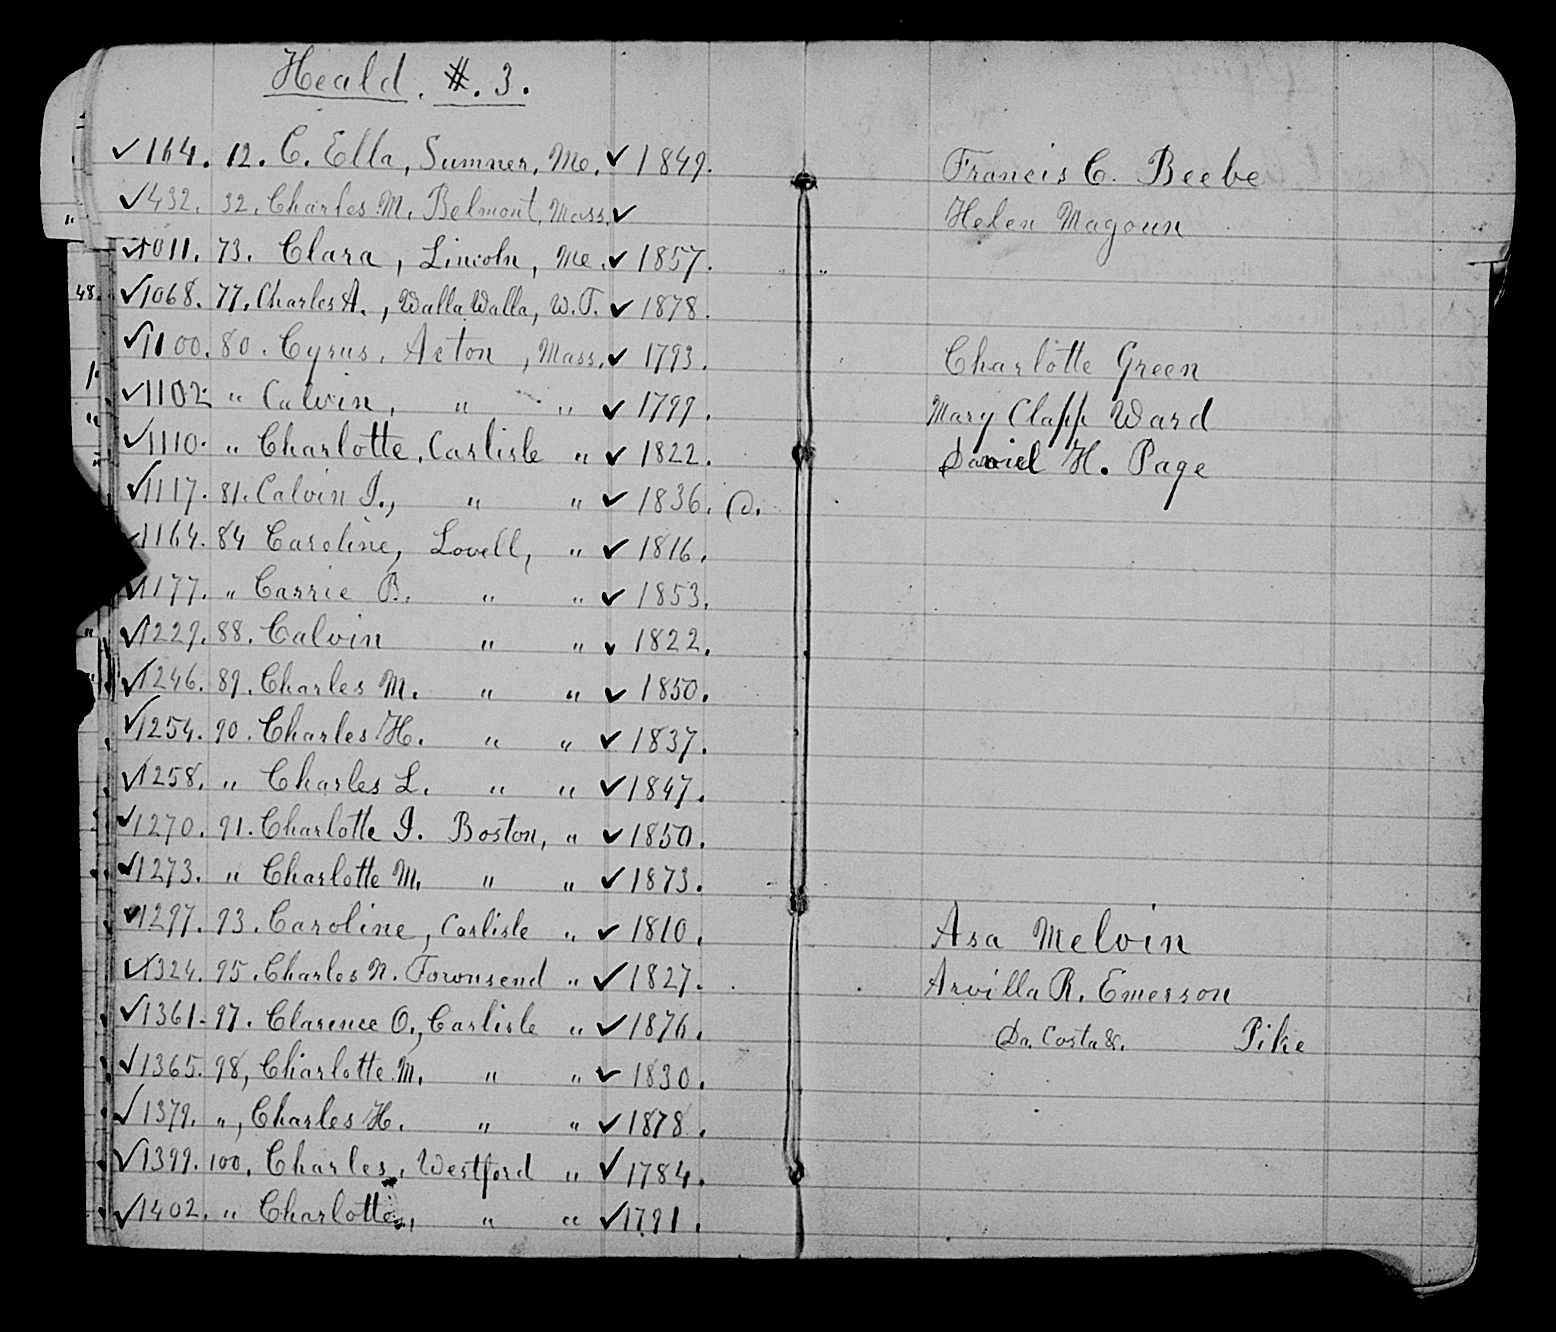 Heald. #. 3.
✓164. 12. C. Ella, Sumner, Me. ✓ 1849. Francis C. Beebe
✓432. 32. Charles M. Belmont, Mass. ✓ Helen Magoun
✓1011. 73. Clara, Lincoln, Me. ✓ 1857. "
48. ✓1068. 77. Charles A., Walla Walla, W.T. ✓ 1878.
✓1100. 80. Cyrus, Acton, Mass. ✓ 1793. Charlotte Green
✓1102. " Calvin, " " ✓ 1799. Mary Clapp Ward
✓1110. " Charlotte, Carlisle " ✓ 1822. Daniel H. Page
✓1117. 81. Calvin I., " " ✓ 1836. @.
✓1164. 84 Caroline, Lovell, " ✓ 1816.
✓1177. " Carrie B. " " ✓ 1853.
✓1229. 88. Calvin " " ✓ 1822.
✓1246. 89. Charles M. " " ✓ 1850.
✓1254. 90. Charles H. " " ✓ 1837.
✓1258. " Charles L. " " ✓ 1847.
✓1270. 91. Charlotte I. Boston, " ✓ 1850.
✓1273. " Charlotte M. " " ✓ 1873.
✓1297. 93. Caroline, Carlisle " ✓ 1810. Asa Melvin
✓1324. 95. Charles N. Townsend " ✓ 1827. Arvilla R. Emerson
✓1361. 97. Clarence O., Carlisle " ✓ 1876. Da. Costa &. Pike
✓1365. 98, Charlotte M. " " ✓ 1830.
✓1379. ", Charles H. " " ✓ 1878.
✓1399. 100. Charles, Westford " ✓ 1784.
✓1402. " Charlotte, " " ✓ 1791.